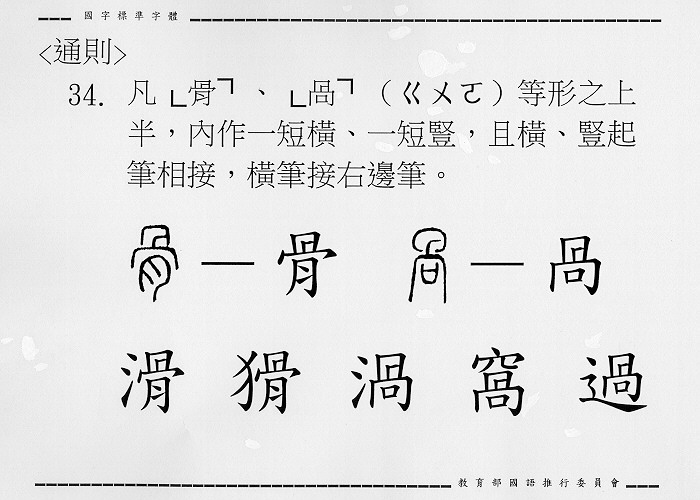 國字標準字體
<通則>
34. 凡﹂骨﹁、﹂咼﹁(ㄍㄨㄛ)等形之上
半，內作一短橫、一短豎，且橫、豎起
筆相接，橫筆接右邊筆。
骨—骨 咼—咼
滑 猾 渦 窩 過
教育部國語推行委員會